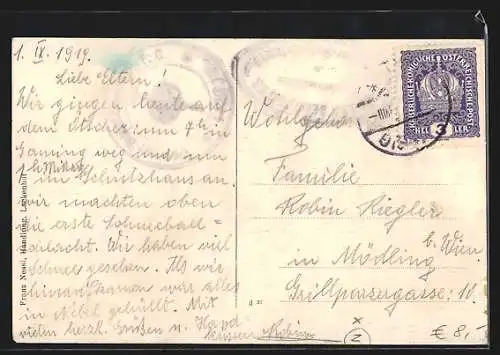 1. IX. 1919.
Liebe Eltern!
Wir gingen heute auf
den Ötscher um 7h in
Gaming weg und um
1h Mittag
im Schutzhaus an
wir machten oben
die erste Schneeball=
schlacht. Wir haben viel
Schnee gesehen. Als wir
hinauf kamen war alles
in Nebel gehüllt. Mit
vielen herzl. Grüßen u. Handküssen
Robin
Franz Nesel, Handlung, Lackenhof
Wohlgeboren
Familie
Robin Riegler
in Mödling
b. Wien.
Grillparzergasse: 10.
KAISERLICHE KÖNIGLICHE ÖSTERREICHISCHE POST
3
HELLER
x
2
€ 8,-